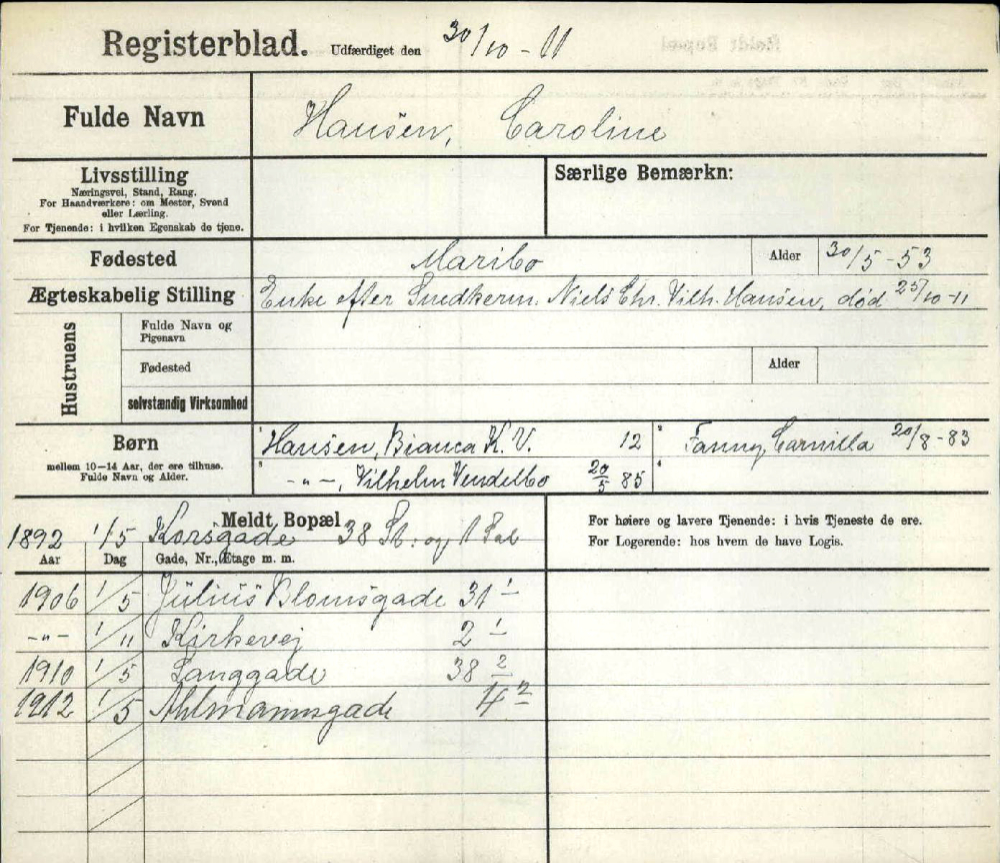 Registerblad. Udfærdiget den 30/10 - 11
Fulde Navn Hansen, Caroline
Livsstilling
Næringsvei, Stand, Rang.
For Haandværkere: om Mester, Svend
eller Lærling.
For Tjenende: i hvilken Egenskab de tjene.
Særlige Bemærkn:
Fødested Maribo Alder 30/5 - 53
Ægteskabelig Stilling Enke efter Snedkerm. Niels Chr. Vilh. Hansen, død 25/10 - 11
Hustruens
Fulde Navn og
Pigenavn
Fødested Alder
selvstændig Virksomhed
Børn
mellem 10—14 Aar, der ere tilhuse.
Fulde Navn og Alder.
Hansen, Bianca K. V. 12 Fanny, Camilla 20/8 - 83
-"-, Vilhelm Vendelbo 20/5 85
Meldt Bopæl
1892 1/5 Korsgade 38 St: og 1 Sal
Aar Dag Gade, Nr., Etage m. m.
For høiere og lavere Tjenende: i hvis Tjeneste de ere.
For Logerende: hos hvem de have Logis.
1906 1/5 Julius Blomsgade 31 1
-"- 1/11 Kirkevej 2 1
1910 1/5 Langgade 38 2
1912 1/5 Ahlmannsgade 4 2